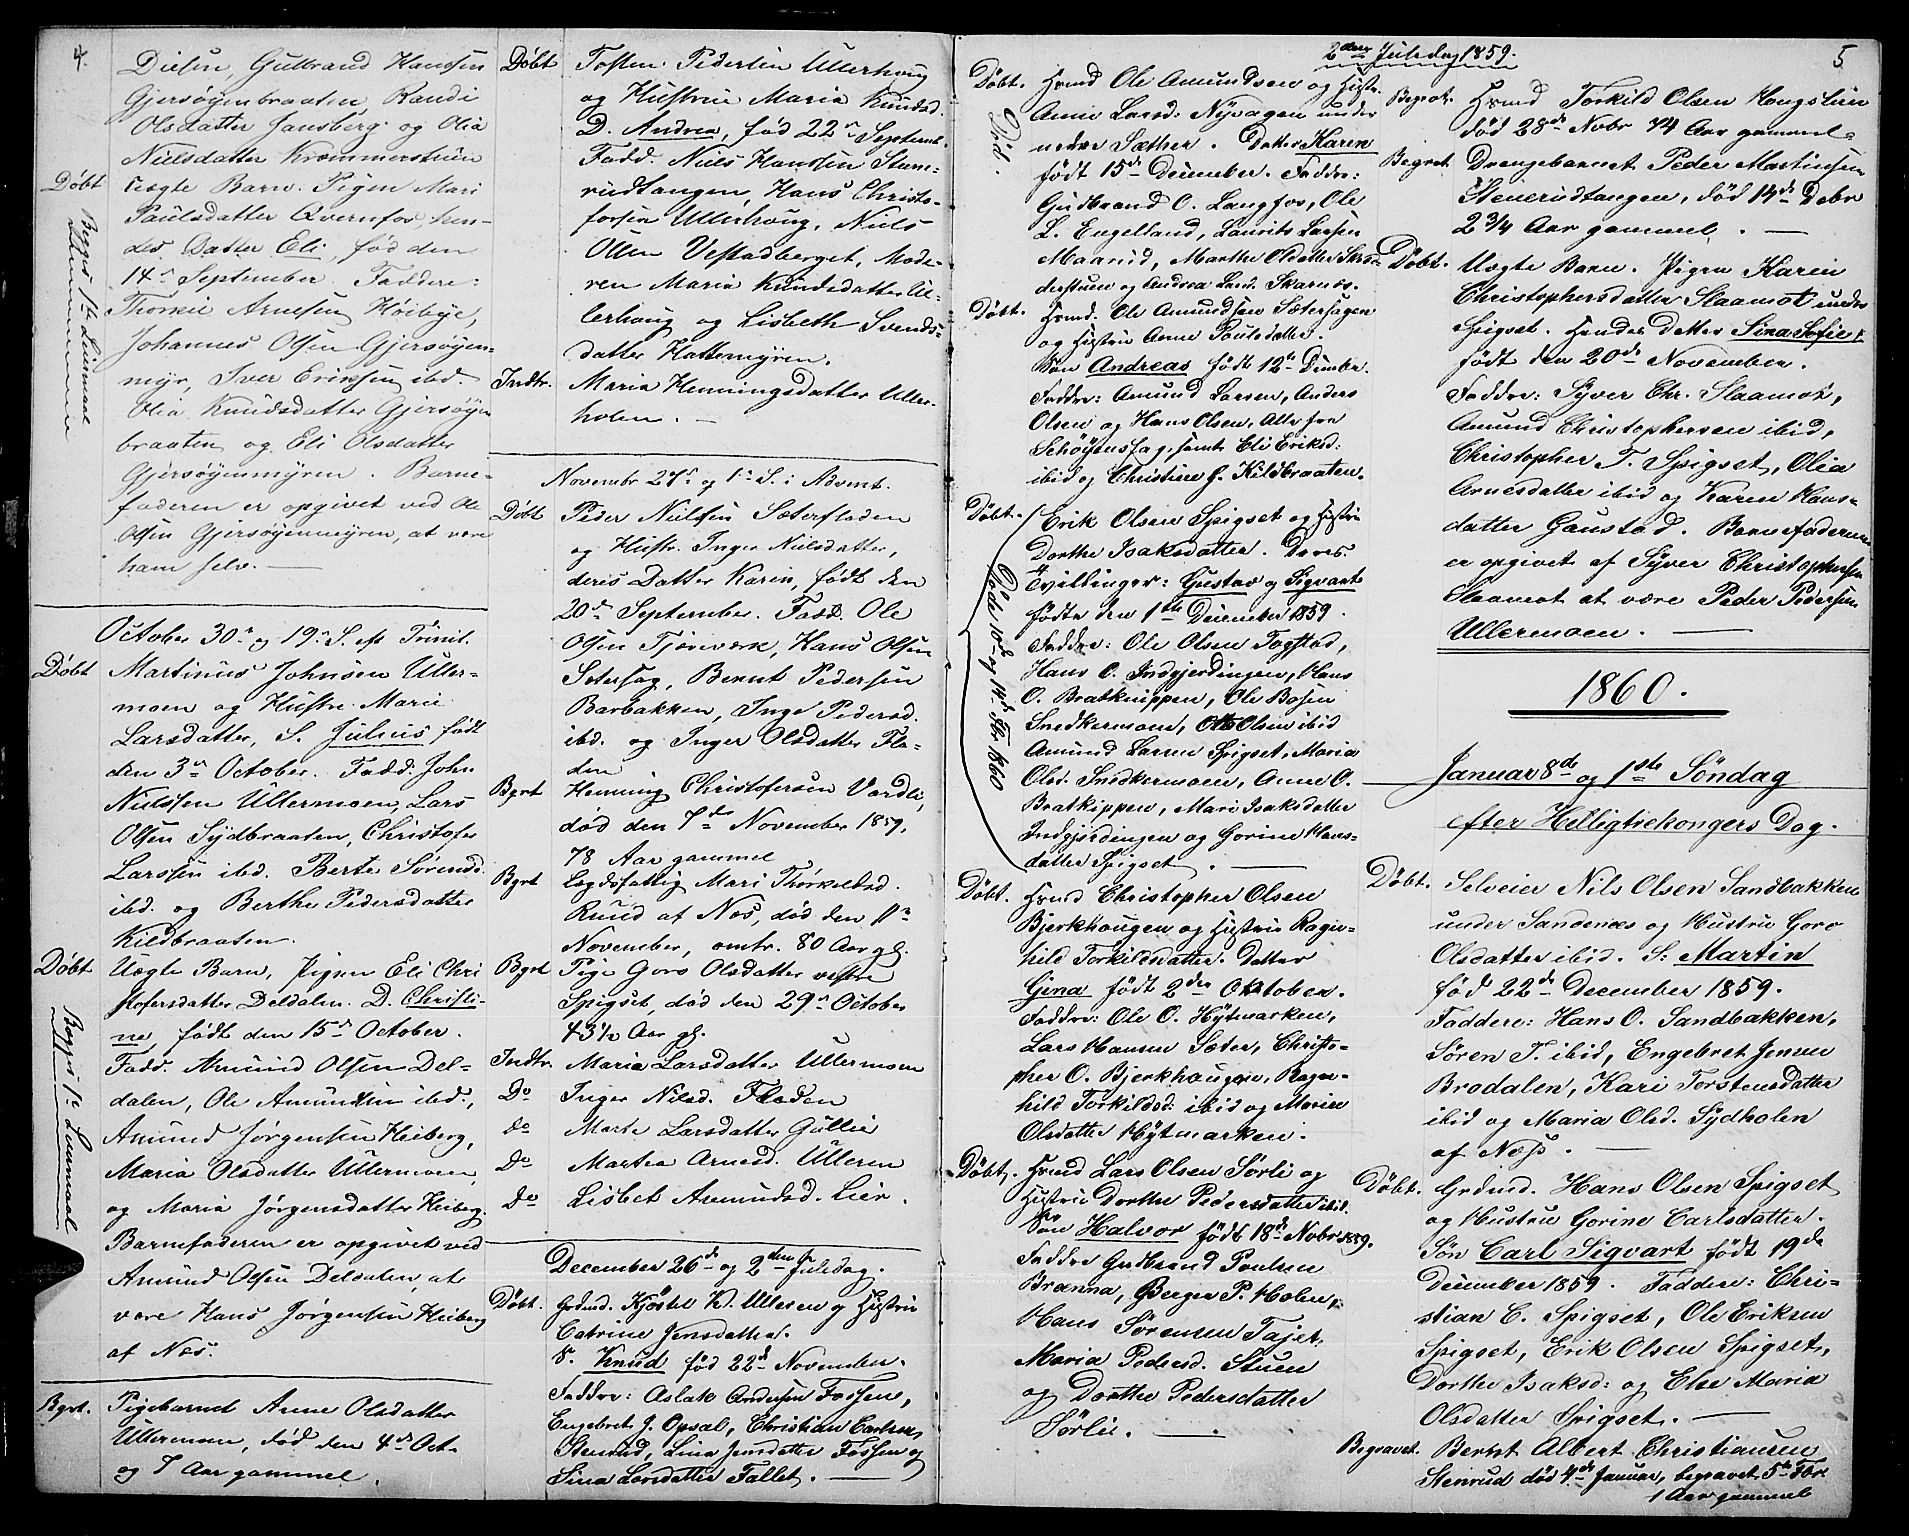 4.
Dielin, Gulbrand Hanssen
Gjersøyenbraaten, Randi
Olsdatter Jansberg og Olia
Nielsdatter Krommerstuen
Døbt
uægte Barn. Pigen Mari
Paulsdatter Qvernfos, hen-
des Datter Eli, fød den
14de September. Faddere:
Thorkil Arnesen Høibye,
Johannes Olsen Gjersøyen-
myr, Iver Eriksen ibd.
Olia Knudsdatter Gjersøyen
braaten og Eli Olsdatter
Gjersøyenmyren. Barne-
faderen er opgivet ved Ole
Olsen Gjersøyenmyren, at være
ham selv. —
Begges 1ste Leiermaal
October 30te og 19de S. ef Trinit.
Døbt
Martinus Johnsen Uller-
moen og Hustru Marie
Larsdatter, S. Julius født
den 3de October. Fadd. John
Nielssen Ullermoen, Lars
Olsen Sydbraaten, Christofer
Larssen ibd. Berte Sørensd.
ibd. og Berthe Pedersdatter
Kildbraaten.
Døbt
Uægte Barn, Pigen Eli Chri
stofersdatter Deldalen. D. Christi-
ne, født den 15de October.
Fadd. Amund Olsen Del-
dalen, Ole Amundsen ibd.,
Amund Jørgensen Heiberg,
Maria Olsdatter Ullermoen,
og Maria Jørgensdatter Heiberg.
Barnefaderen er opgivet ved
Amund Olsen Deldalen, at
være Hans Jørgensen Heiberg
af Nes.
Begges 1ste Leiermaal
Bgrt.
Pigebarnet Anne Olsdatter
Ullermoen, død den 4de Oct.
og 7 Aar gammel.
Døbt
Tosten Pedersen Ullerhoug
og Hustrue Maria Knudsd.
D. Andrea, fød 22de Septemb.
Fadd. Niels Hanssen Sten-
rudtangen, Hans Christo-
fersen Ullerhoug, Niels
Olsen Vestadberget, Mode-
ren Maria Knudsdatter Ul-
lerhoug og Lisbeth Svends-
datter Hattemyren.
Indtr.
Maria Henningsdatter Uller-
holen. —
Novembr 27de og 1ste S. i Advent.
Døbt
Peder Nielsen Sæterfladen
og Hustr. Inger Nielsdatter,
deres Datter Karin, født den
20de September. Fadd. Ole
Olsen Tjernæsk, Hans Olsen
Setersag, Bernt Pedersen
Barbakken, Inge Pedersd.
ibd. og Inger Olsdatter Fla-
den
Bgrt
Henning Christofersen Vardli,
død den 7de November 1859.
78 Aar gammel
Bgrt
Legdsfattig Mari Thorkelsd.
Ruud af Nes, død den 11te
November, omtr. 80 Aar gl.
Bgrt
Pige Goro Olsdatter vestre
Spigset, død den 29de October
43½ Aar gl.
Indtr.
Maria Larsdatter Ullermoen
Do
Inger Nilsd. Fladen
do
Marte Larsdatter Gullie
Do
Martea Arnesd. Ulleren
Do
Lisbet Amundsd. Lier.
December 26de og 2den Juledag.
Døbt.
Grdmd. Kjøstel K. Ulleren og Hustru
Catrine Jensdatter.
S. Knud fød 22de November.
Faddre: Aslak Andersen Fossen,
Engebret J. Opsal, Christian Carlsen
Stenrud, Lina Jensdatter Fossen og
Sina Larsdatter Fallet. —
2den Juledag 1859.
5
Døbt.
Hsmd Ole Amundsen og Hstr.
Anne Larsd: Nyhagen under
nedre Sæther. Datter Karen
født 15de December. Faddre:
Gudbrand O. Langfos, Ole
L. Engelland, Laurits Larsen
Maarud, Marthe Olsdatter Skred-
derstuen og Andrea Lars. Skarnes.
Død.
Døbt.
Hsmd. Ole Amundsen Sæterhagen
og Hustru Anne Poulsdatter.
Søn Andreas født 12te Decmber.
Faddre: Amund Larsen, Anders
Olsen og Hans Olsen, Alle fra
Schøyenshag, samt Eli Eriksd:
ibid og Christine H. Kildbraaten.
Døbt.
Erik Olsen Spigset og Hustru
Dorthe Isaksdatter. Deres
Tvillinger: Gustav og Sigvart
fødte den 1ste December 1859.
Faddre: Ole Olsen Togstad,
Hans O. Indgjerdingen, Hans
O. Bratknippen, Ole Bosen
Snedkermoen, Otto Olsen ibid
Amund Larsen Spigset, Maria
Olsd. Snedkermoen, Anne O.
Bratkippen, Mari Isaksdatter
Indgjerdingen og Gorine Hans-
datter Spigset. —
Døde 10de og 14de Fbr. 1860
Døbt.
Hsmd Christopher Olsen
Bjerkhaugen og Hustru Ragn-
hild Torkildsdatter. Datter
Gina født 2den Oktober.
Faddre: Ole O. Hytmarken,
Lars Hansen Sæter, Christo-
pher O. Bjerkhaugen, Ragn-
hild Torkildsd: ibid og Maren
Olsdatter Hytmarken.
Døbt.
Hsmd Lars Olsen Sørli og
Hustru Dorthe Pedersdatter ibid.
Søn Halvor født 18de Nobr 1859.
Faddre Gudbrand Poulsen
Brænna, Berger P. Holen,
Hans Sørensen Tajet
Maria Pedersd. Stuen
og Dorthe Pedersdatter
Sørlie. — .
Begrvt.
Hsmd Torkild Olsen Haugstuen
død 28de Nobr 74 Aar gammel.
Begrvt.
Drengebarnet Peder Martinsen
Stenerudtangen, død 14de Debr
2¾ Aar gammel. —
Døbt.
Uægte Barn. Pigen Karen
Christophersdatter Slaamot under
Spigset. Hendes Datter Sina Sofie,
født den 20de November.
Faddre: Syver Chr. Slaamot,
Amund Christophersen ibid,
Christopher T. Spigset, Olia
Arnesdatter ibid og Karen Hans-
datter Gaustad. Barnefaderen
er opgivet af Syver Christophersen
Slaamot at være Peder Pedersen
Ullermoen. —
1860.
Januar 8de og 1ste Søndag
efter Helligtrekongers Dag.
Døbt.
Selveier Nils Olsen Sandbakken
under Sandernes og Hustru Goro
Olsdatter ibid. S: Martin
fød 22de December 1859.
Faddere: Hans O. Sandbakken,
Søren T. ibid, Engebret Jensen
Brodalen, Kari Torstensdatter
ibid og Maria Olsd. Sydholen
af Næss. —
Døbt.
Grdmd. Hans Olsen Spigset
og Hustru Gorine Carlsdatter.
Søn Carl Sigvart født 19de
December 1859. Faddere: Chri-
stian C. Spigset, Ole Eriksen
Spigset, Erik Olsen Spigset,
Dorthe Isaksd: og Else Maria
Olsdatter Spigset. —
Begravet.
Bernt Albert Christiansen
Stenrud død 4de Januar, begravet 5te Fbr.
1 Aar gammel